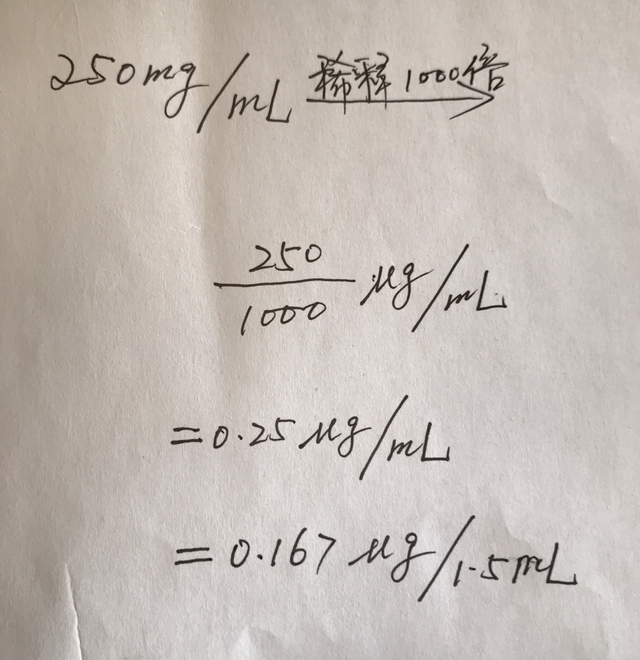 250mg/mL 稀释1000倍
250
1000 μg/mL
=0.25 μg/mL
=0.167 μg/1.5mL